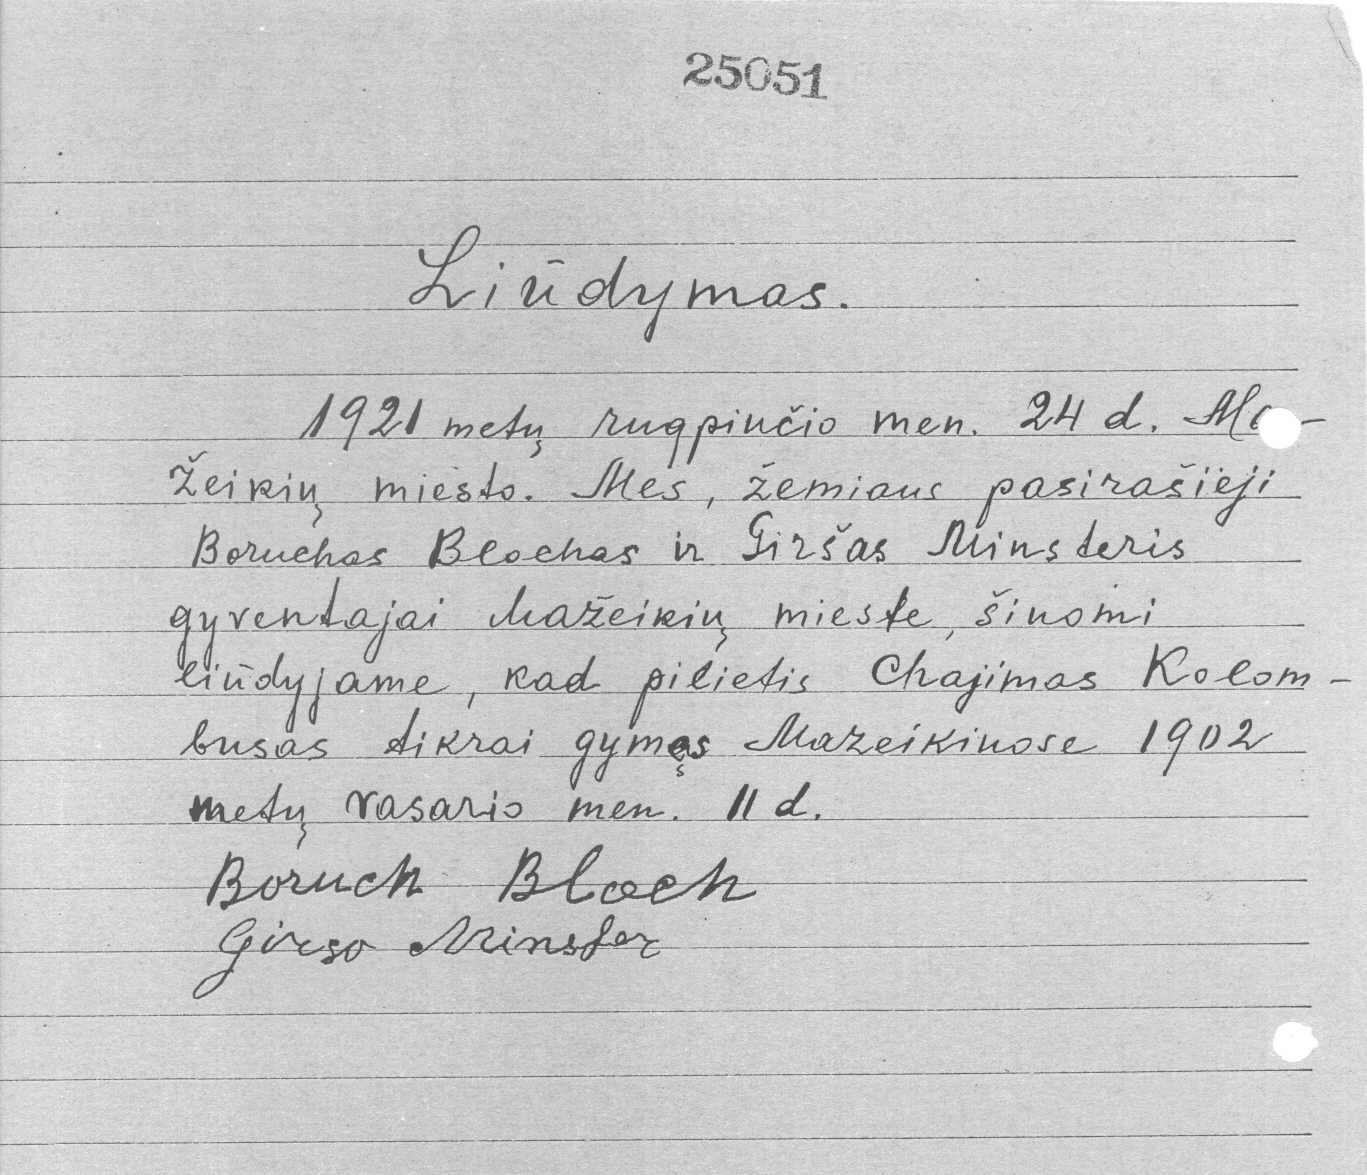 25051
Liūdymas.
1921 metų rugpiučio men. 24 d. Ma-
žeikių miesto. Mes, žemiaus pasirašiėji
Boruchas Blochas ir Giršas Minsteris
gyventajai Mažeikių mieste, šinomi
liūdyjame, kad pilietis Chajimas Kolom-
busas tikrai gymęs Mazeikiuose 1902
metų vasario men. 11 d.
Boruch Bloch
Girso Minster